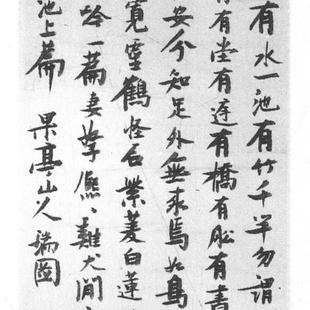 有水一池有竹千竿勿謂
有堂有庭有橋有船有書
安分知足外無求焉如鳥
寬靈鶴怪石紫菱白蓮
吟一篇妻孥熙〻雞犬閒
池上篇 果亭山人瑞圖